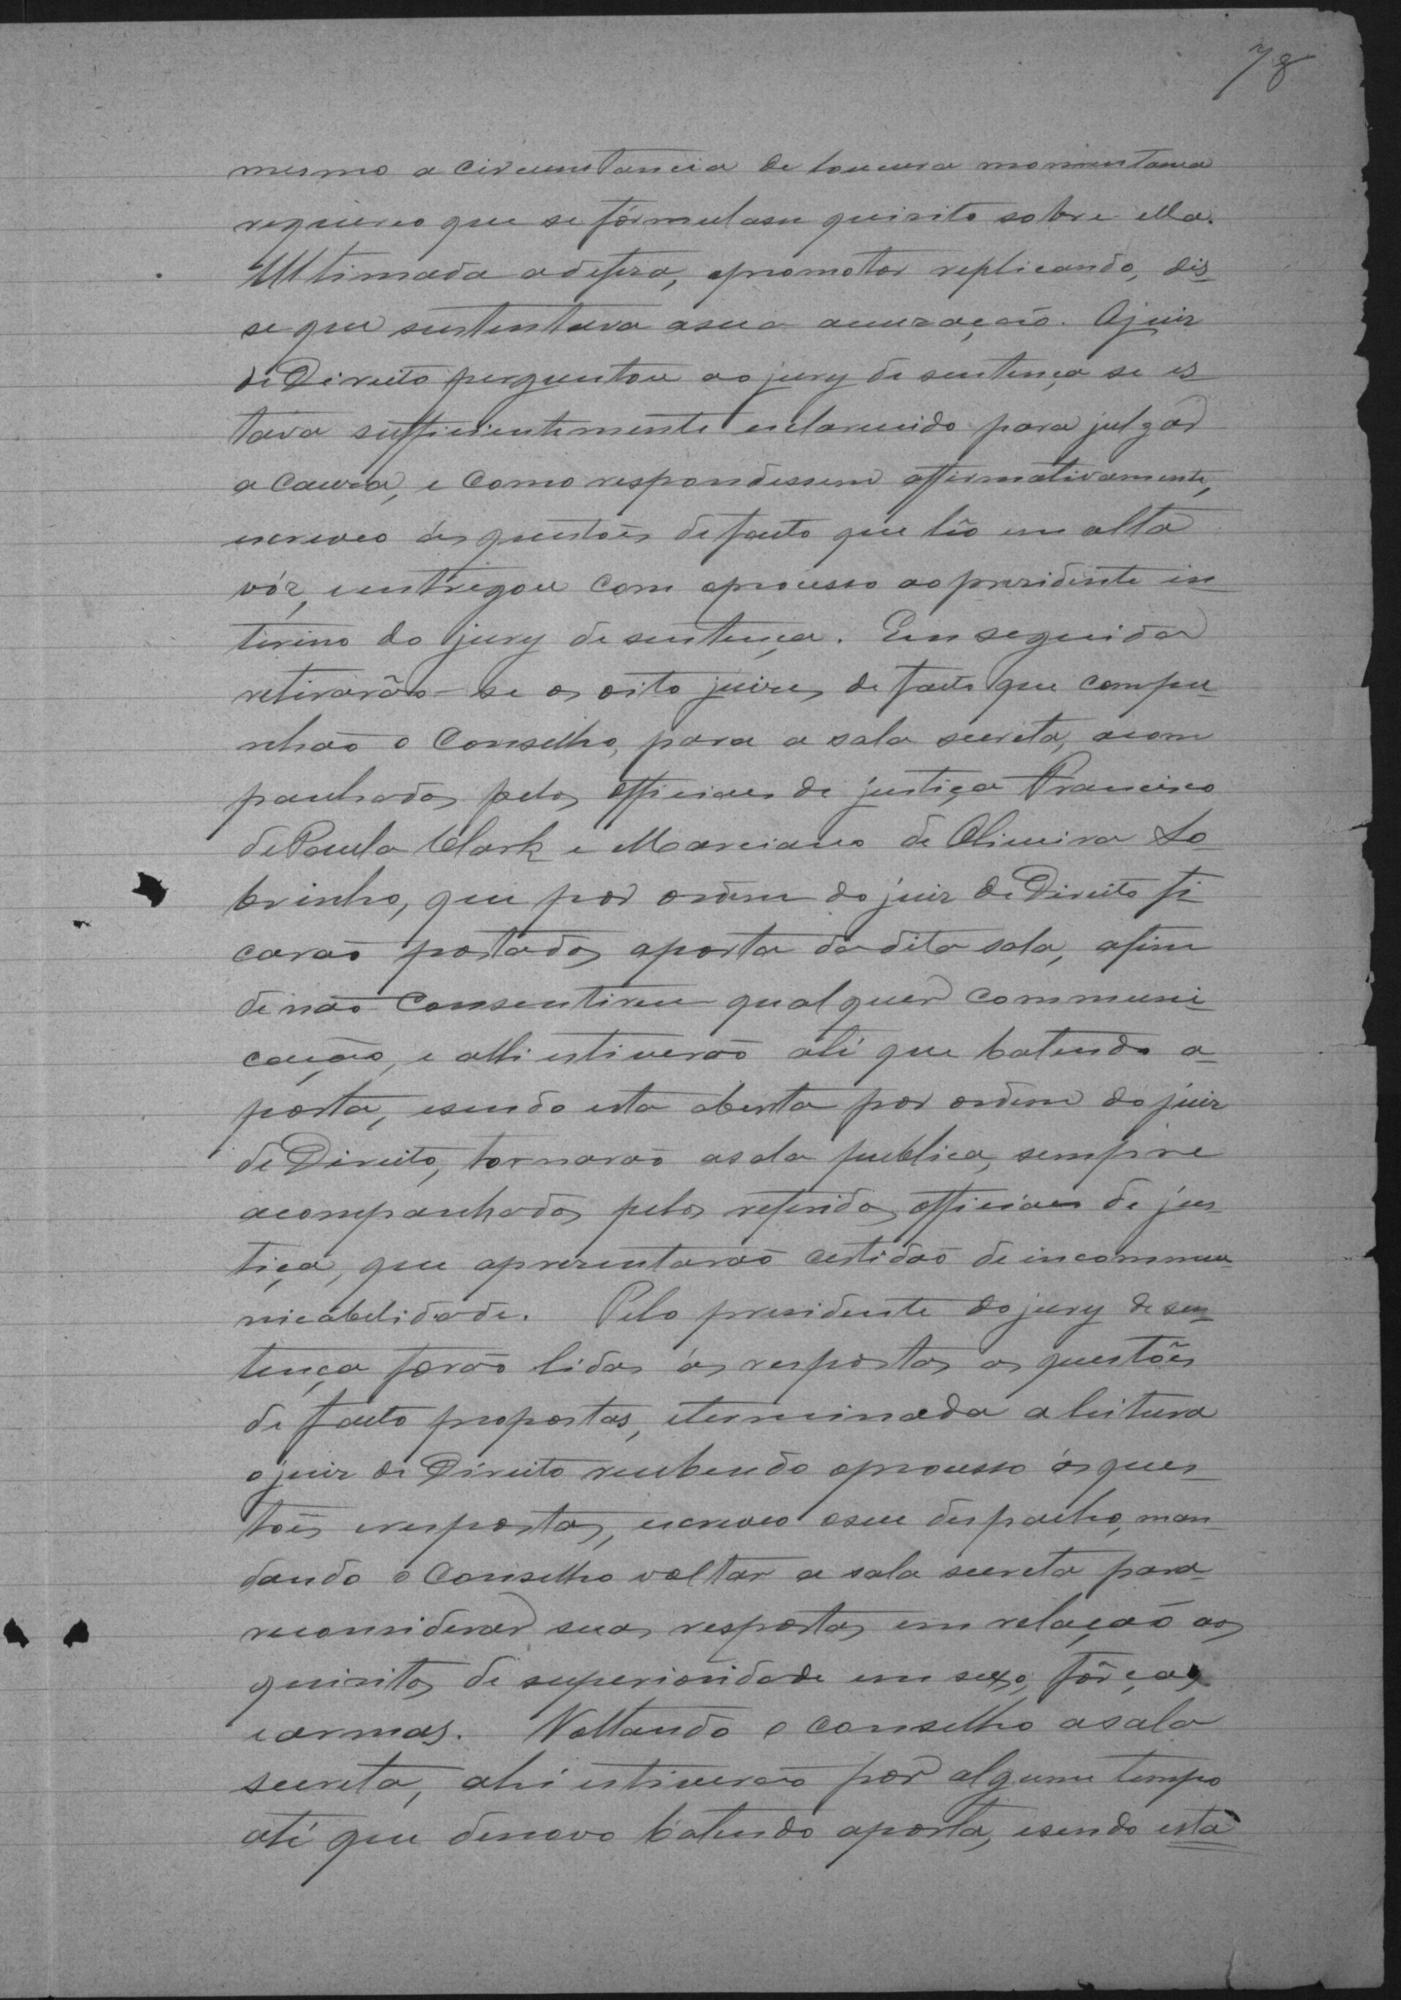 78
mesmo a circunstancia de loucura momentanea
requereo que se formulasse quisito sobre ella.
Ultimada a defesa, o promotor replicando, dis-
se que sustentava a sua accuzação. O juiz
de Direito perguntou ao jury de sentença se es
tava sufficientemente esclarecido para julgar
a causa, e como respondessem affirmativamente,
escreveo ás questões de facto que lêo em alta
vóz, e entregou com o processo ao prezidente in-
terino do jury de sentença. Em seguida
retirarão-se os oito juizes de facto que compu-
nhão o Conselho, para a sala secreta, acom
panhados pelos officiaes de justiça Francisco
de Paula Clark e Marciano de Oliveira So
brinho, que por ordem do juiz de Direito fi
carão postados a porta da dita sala, afim
de não consentirem qualquer communi-
cação, e alli estiverão até que batendo a-
porta, e sendo esta aberta por ordem do juiz
de Direito, tornarão a sala publica, sempre
acompanhados pelos referidos officiaes de jus-
tiça, que aprezentarão certidão de incommu-
nicabelidade. Pelo presidente do jury de sen-
tença forão lidas ás respostas as questões
de facto propostas, e terminada a leitura
o juiz de Direito recebendo o processo ás ques-
tões e respostas, escreveo o seu despacho, man-
dando o Conselho voltar a sala secreta para
reconsiderar suas respostas em relação aos
quisitos de superioridade em sexo, forças
e armas. Voltando o conselho a sala
secreta, ahi estiverão por algum tempo
até que denovo batendo a porta, e sendo esta